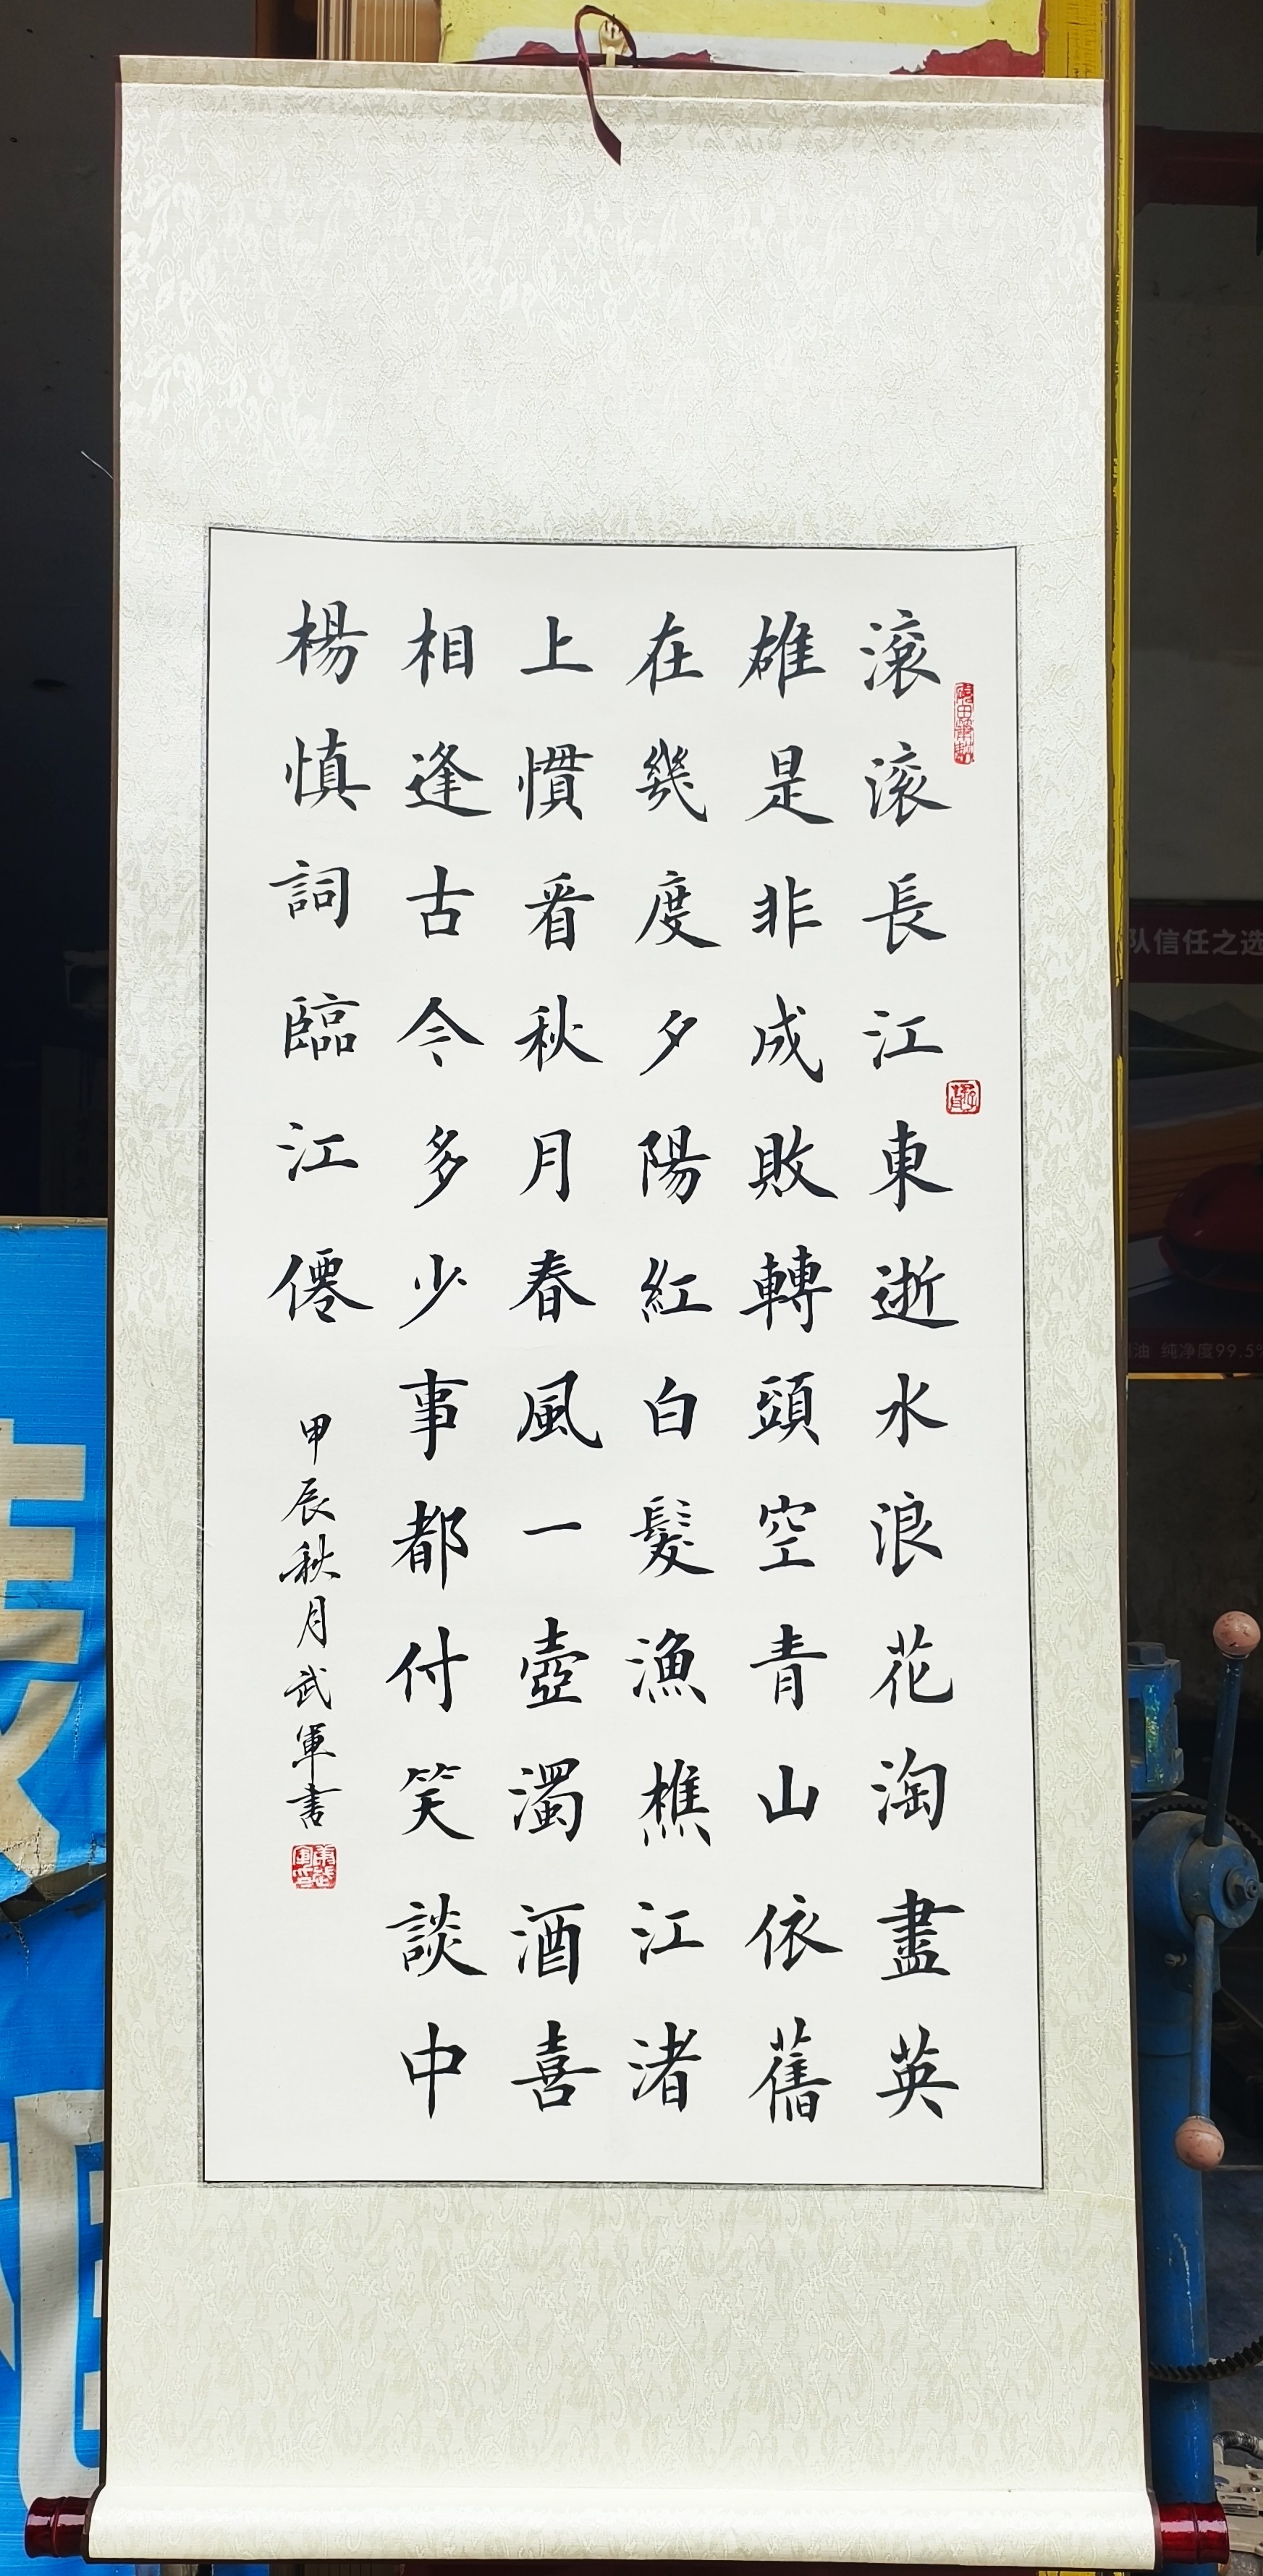 滾滚長江東逝水浪花淘盡英
雄是非成敗轉頭空青山依舊
在幾度夕陽紅白髮漁樵江渚
上慣看秋月春風一壺濁酒喜
相逢古今多少事都付笑談中
楊慎詞臨江僊
甲辰秋月武軍書
队信任之选
油 纯净度99.5